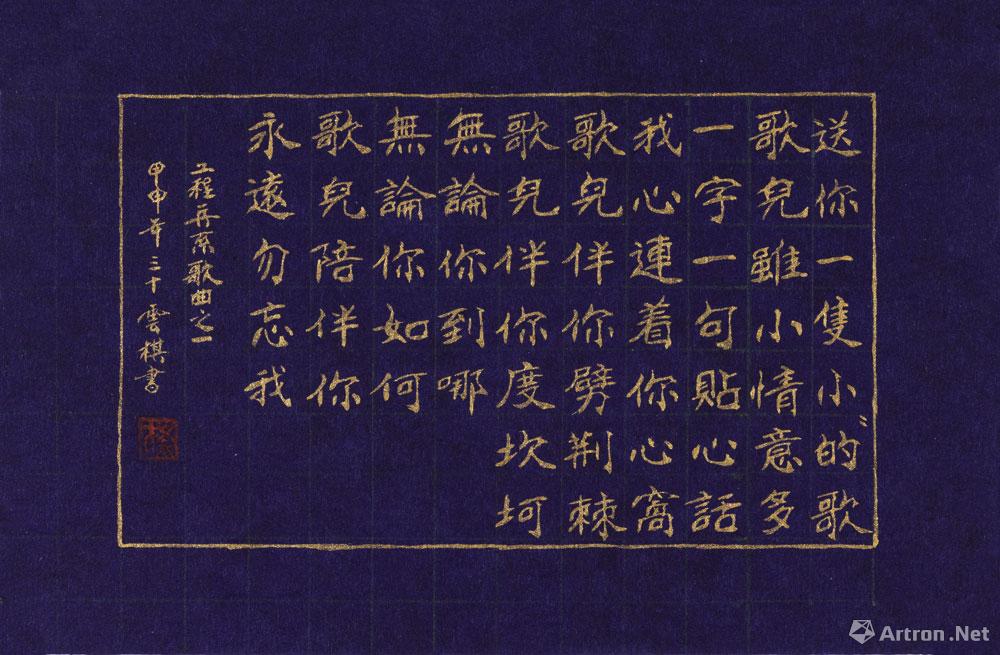 送你一隻小〻的歌
歌兒雖小情意多
一字一句貼心話
我心連着你心窩
歌兒伴你劈荆棘
歌兒伴你度坎坷
無論你到哪
無論你如何
歌兒陪伴你
永遠勿忘我
工程歌曲之一
甲申年三十雲棋書
Artron.Net